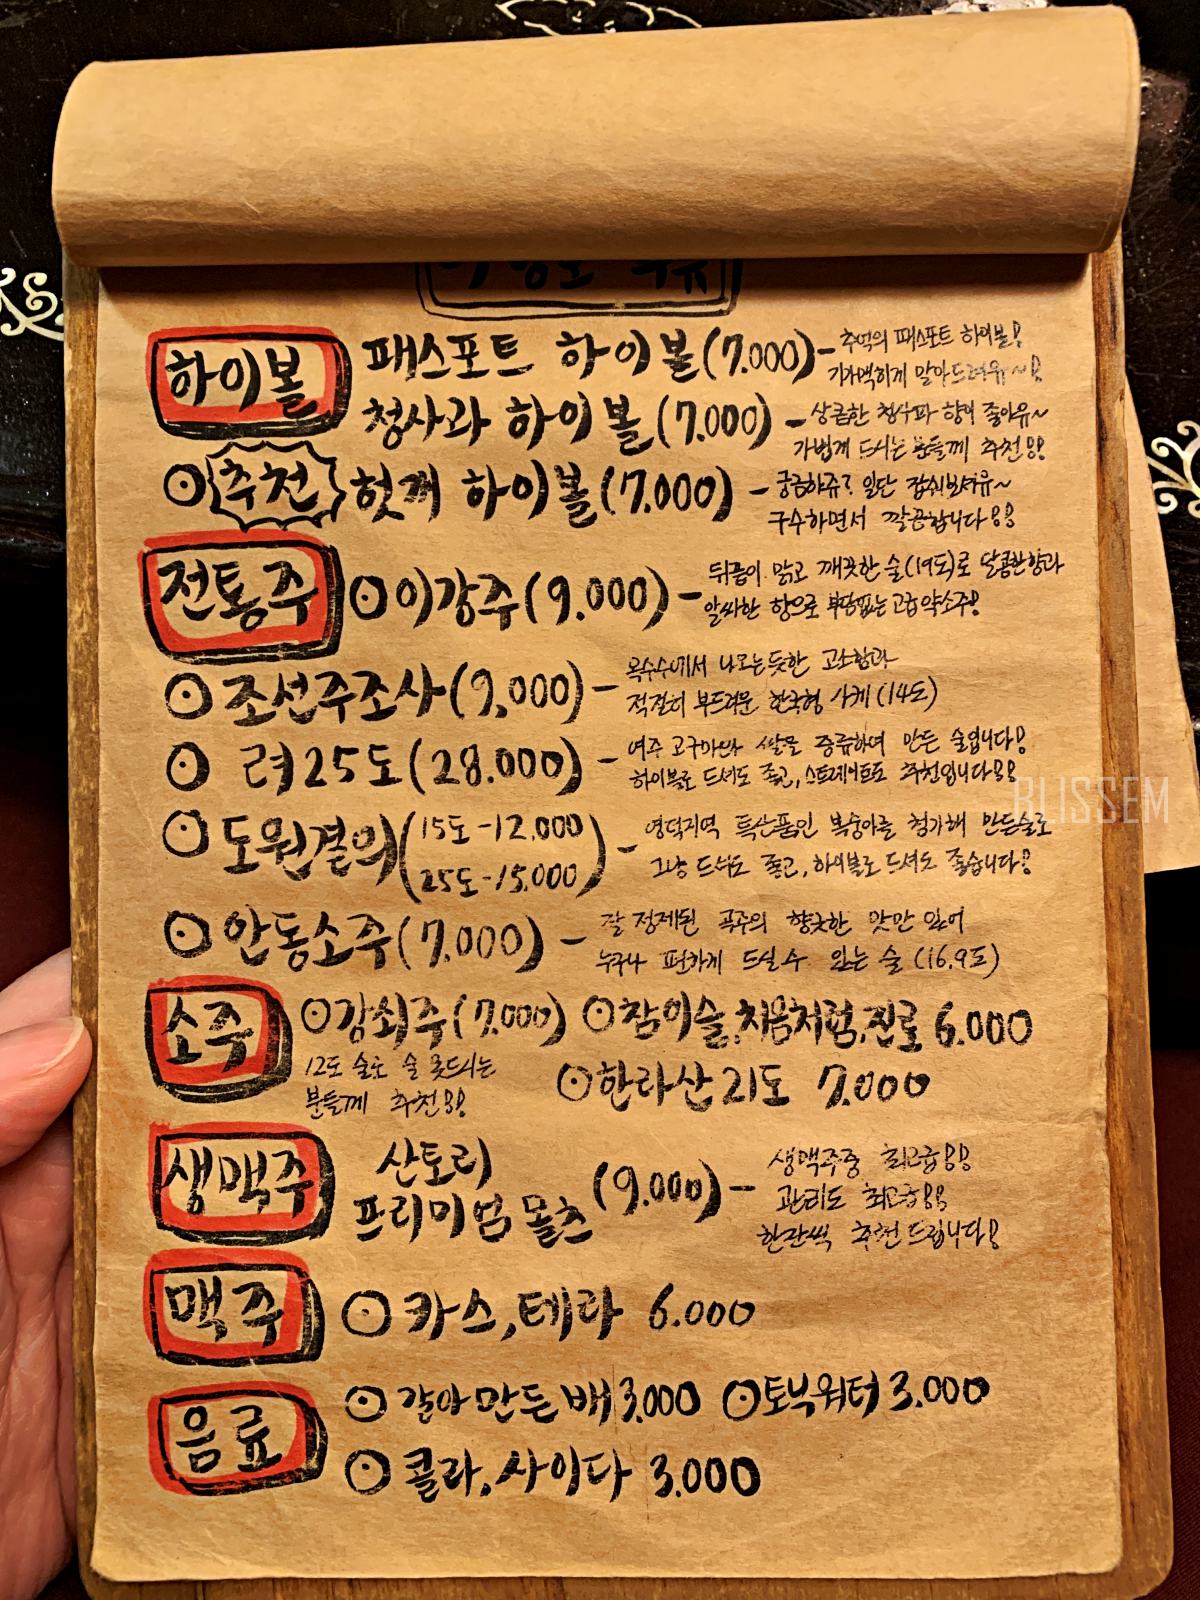 하이볼 패스포트 하이볼(7.000)- 추억의 패스포트 하이볼!
기가맥히게 말아드려유~!
청사과 하이볼(7.000)- 상큼한 청사과 향이 좋아유~
가볍게 드시는 분들께 추천!!
⊙추천 헛개 하이볼(7.000)- 궁금하쥬? 일단 잡숴보셔유~
구수하면서 깔끔합니다!!
전통주 ⊙이강주(9.000)- 뒤끝이 맑고 깨끗한 술(19도)로 달콤한향과
알싸한 향으로 부담없는 고급약소주!
⊙조선주조사(9,000)- 옥수수에서 나오는듯한 고소함과
적절히 부드러운 한국형 사케(14도)
⊙려25도(28.000)- 여주 고구마와 쌀을 증류하여 만든 술입니다!
하이볼로 드셔도 좋고, 스트레이트도 추천입니다!!
BLISSEM
⊙도원결의(15도-12,000 - 영덕지역 특산품인 복숭아를 첨가해 만든술로
25도-15.000) 그냥 드셔도 좋고, 하이볼로 드셔도 좋습니다!
⊙안동소주(7,000)- 잘 정제된 곡주의 향긋한 맛만 있어
누구나 편하게 드실수 있는 술(16.9도)
소주 ⊙강쇠주(7.000) ⊙참이슬,처음처럼,진로 6.000
12도 술로 술 못드시는
분들께 추천!!
⊙한라산 21도 7.000
생맥주 산토리
프리미엄 몰츠(9.000)- 생맥주중 최고급!!
관리도 최고급!!
한잔씩 추천드립니다!
맥주 ⊙카스,테라 6.000
음료 ⊙갈아만든배 3.000 ⊙토닉워터 3.000
⊙콜라,사이다 3.000